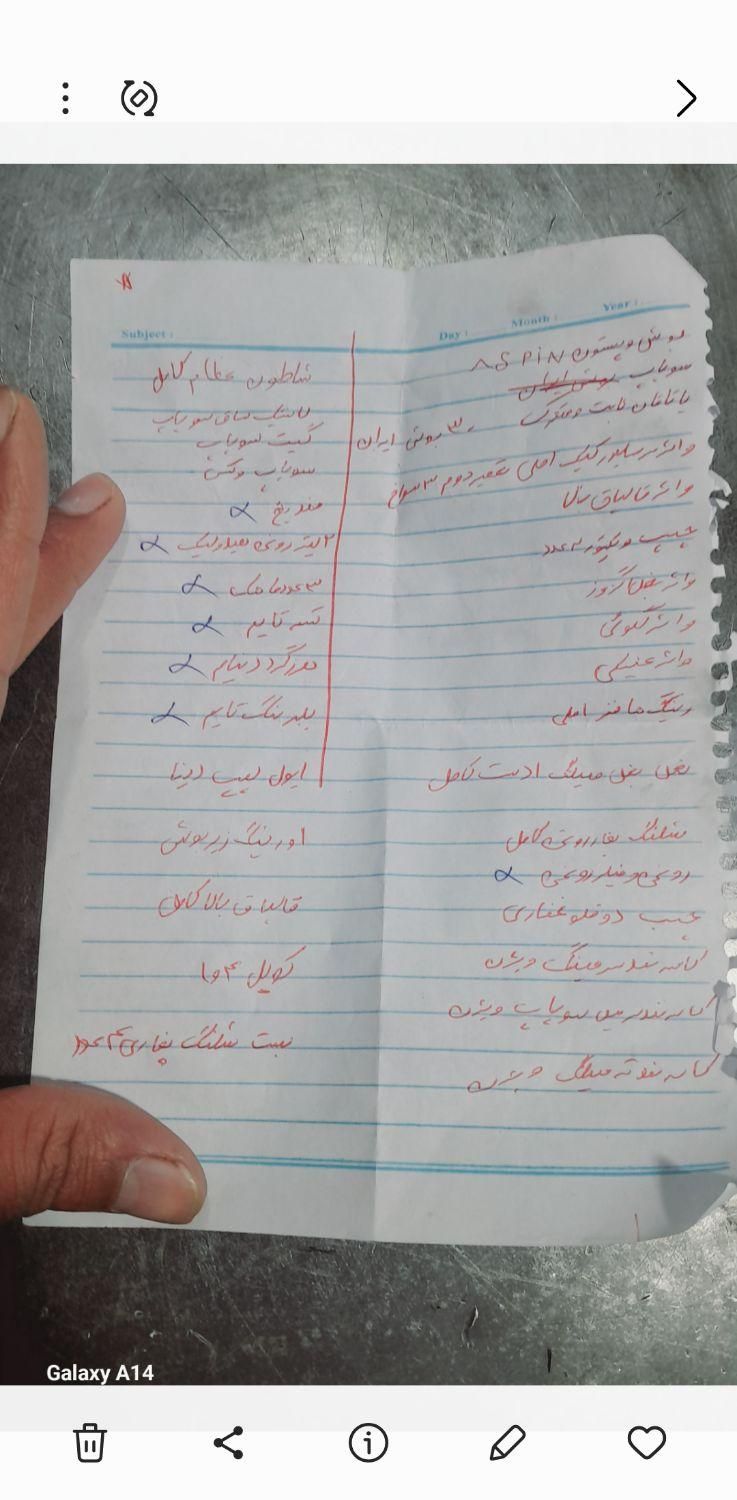 Year :
Month :
Day :
Subject :
بوش و پیستون AS PiN
سوپاپ
یاتاقان ثابت و متحرک ۳۰ بوش ایران
واشر سرسیلندر کینگ اصلی تعمیر دوم ۳ سوراخ
واشر قالپاق بالا
چسب ویکتور ۲ عدد
واشر بغل اگزوز
واشر گلوئی
واشر عینکی
رینگ ما فنر اصلی
بغل بغل میلنگ ادت کامل
شلنگ بخار روغن کامل
روغن و فیلتر روغن
چسب دوقلو غفاری
کاسه نمد سرمیلنگ ویژن
کاسه نمد میل سوپاپ ویژن
کاسه نمد ته میلنگ ویژن
شاطون عظام کامل
لاستیک ساق سوپاپ
گیت سوپاپ
سوپاپ وکس
ضدیخ
۲ لیتر روغن هیدرولیک
۳ عدد ماسک
تسمه تایم
هرزگرد دینام
بلبرینگ تایم
اویل پمپ دینا
اورینگ زیر بوش
قالپاق بالا کامل
کویل ۴ تا
بست شلنگ بخاری ۴ عدد
Galaxy A14